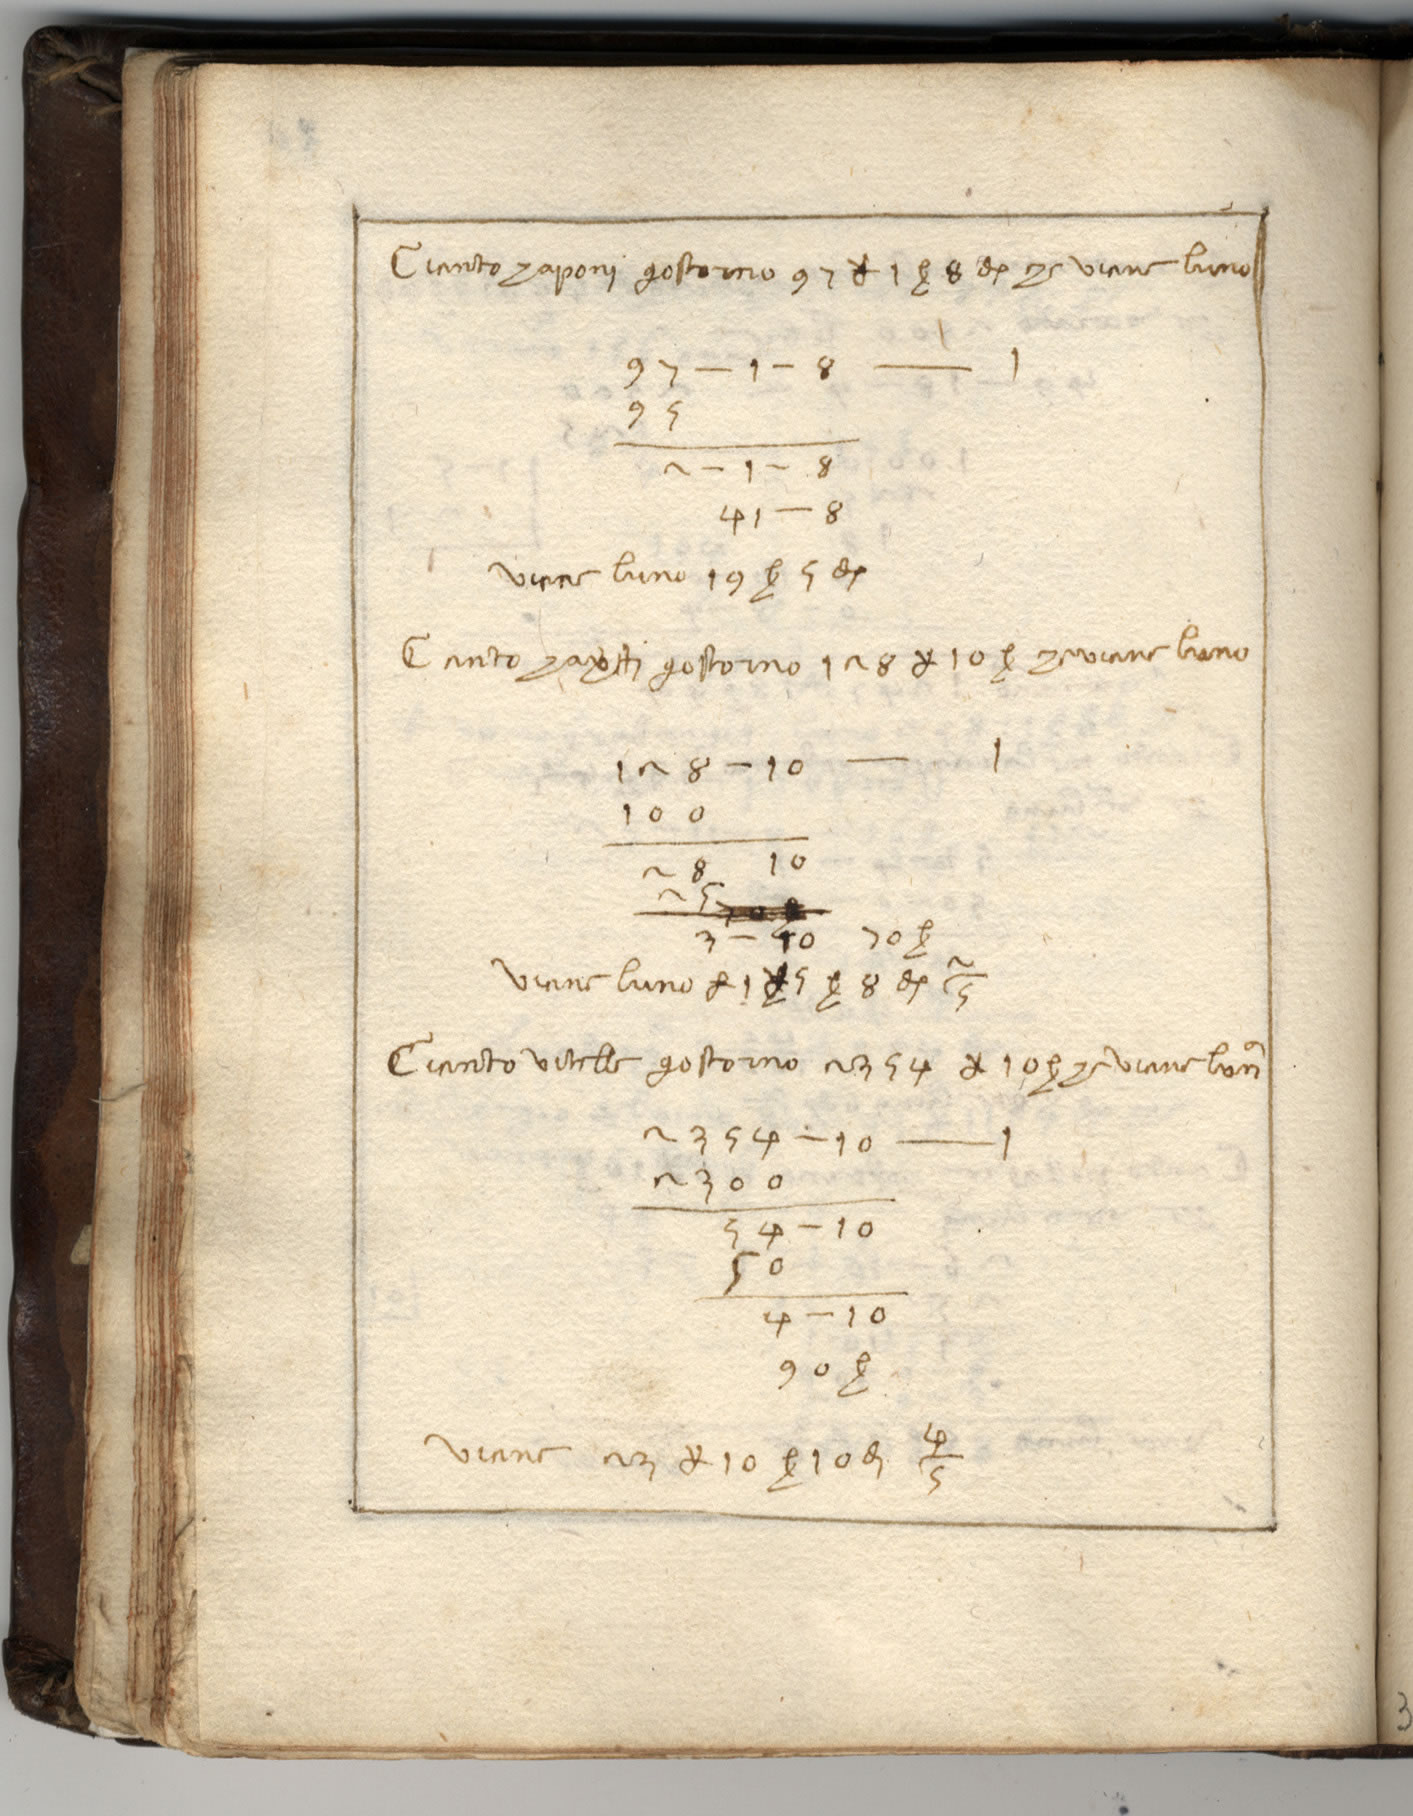 Ciento zaponi gostorno 97 ₰ 1 ẞ 8 dr ze viene luno
97 — 1 — 8 —— 1
95
2 — 1 — 8
41 — 8
viene luno 19 ẞ 5 dr
Cento gostorno 128 ₰ 10 ẞ ze viene luno
128 — 10 — 1
100
28 10
25
3 — 10 70 ẞ
viene luno ₰ 1 5 ẞ 8 dr 2/5
Ciento vitelle gostorno 2354 ₰ 10 ẞ ze viene lun°
2354 — 10 —— 1
2300
54 — 10
50
4 — 10
90 ẞ
viene 23 ₰ 10 ẞ 10 d 4/5
3